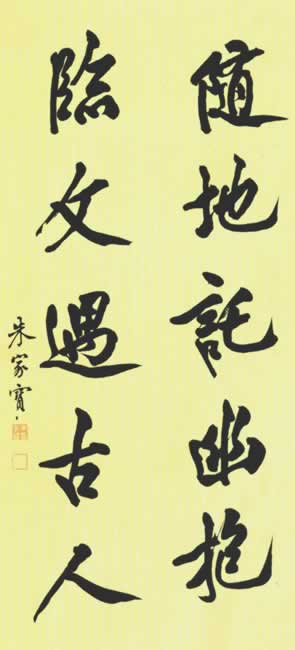 随地託幽抱
臨文遇古人
朱家寳